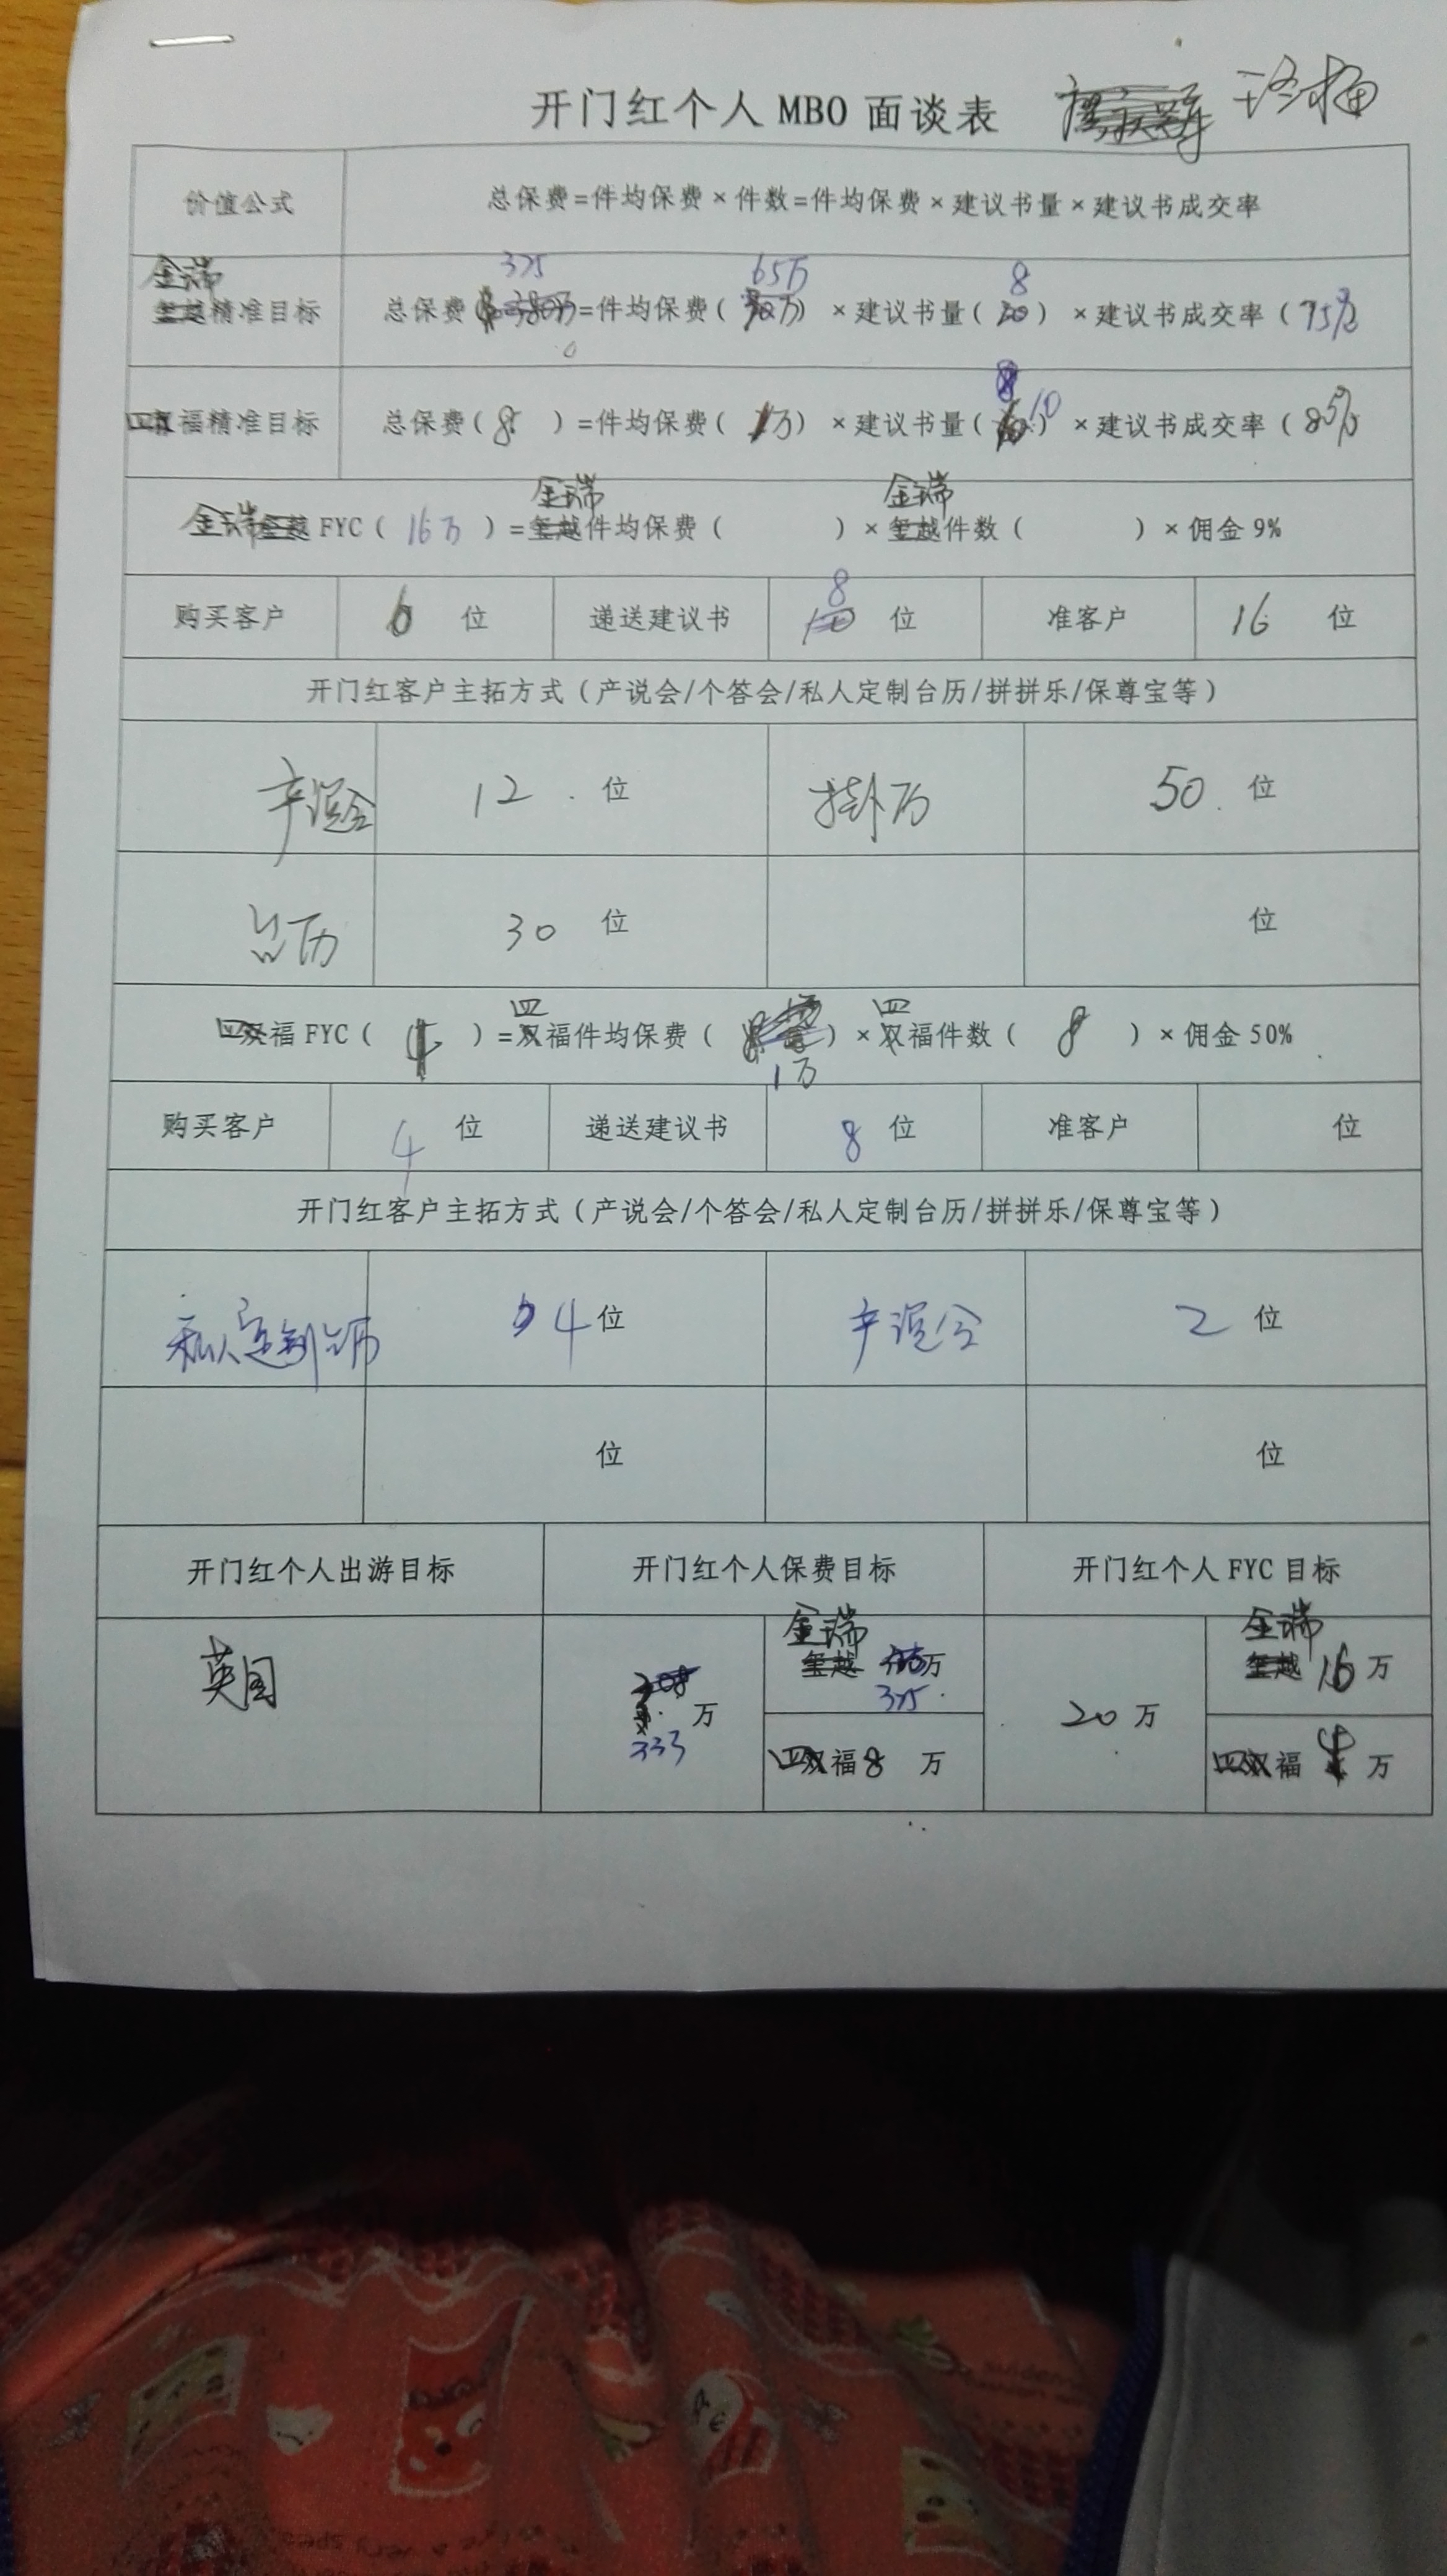 开门红个人 MBO 面谈表
价值公式 总保费=件均保费×件数=件均保费×建议书量×建议书成交率
金瑞 65万 8
精准目标 总保费( )=件均保费( )×建议书量( )×建议书成交率(75%
四福精准目标 总保费(8 )=件均保费(1万)×建议书量( 10)×建议书成交率(85%
金瑞 金瑞
金瑞 FYC(16万)= 件均保费( )× 件数( )×佣金 9%
8
购买客户 6 位 递送建议书 位 准客户 16 位
开门红客户主拓方式(产说会/个答会/私人定制台历/拼拼乐/保尊宝等)
产说会 12 位 掛历 50 位
台历 30 位 位
四 四
四福 FYC(4 )= 福件均保费( )× 福件数( 8 )×佣金 50%
1万
购买客户 4 位 递送建议书 8 位 准客户 位
开门红客户主拓方式(产说会/个答会/私人定制台历/拼拼乐/保尊宝等)
私人定制台历 4 位 产说会 2 位
位 位
开门红个人出游目标 开门红个人保费目标 开门红个人 FYC 目标
英国 万 333
金瑞 万
四福 8 万
20 万
金瑞 16 万
四福 4 万